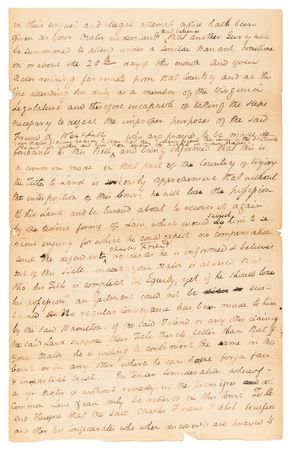 in this unjust and illegal attempt notice hath been
given as your Orator understands and believes that another Jury will
be summoned to attend under a similar Warrant sometime
on or about the 20th day of this month and your
Orator residing far remote from that Country and as the
attending his duty as a member of the Virginia
Legislature and therefore incapable of taking the steps
necessary to defeat the improper purposes of the said
Friend & who are prayed to be made de-
fendants to this Bill and being informed that this is
a common mode in that part of the Country of trying
the Title to Land is seriously apprehensive that without
the interposition of this Court he will lose the possession
of his Land, and be turned about to recover it again
by the tedious forms of Law which would to him be se-
rious injury for which he could expect no compensation
since the defendants Charles Friend resides as he is informed & believes
out of the State indeed your Orator is advised that
tho his Title is compleat in Equity, yet if he should lose
his possession an Ejectment could not be sus-
tained as no regular conveyance has been made to him
by the said Hamilton. if the said Friend or any other claiming
the said Land suppose their Title March better than that of
your Orator he is willing to controvert the same in this
Court or in any other where he can hope for a fair
& impartial trial. In tender consideration whereof
& as yr Orator is without remedy in the premises at
Common Law & can only be relieved in this Court To the
end therefore that the said Charles Friend & Abel
and other his Confederates who when discovered are prayed to